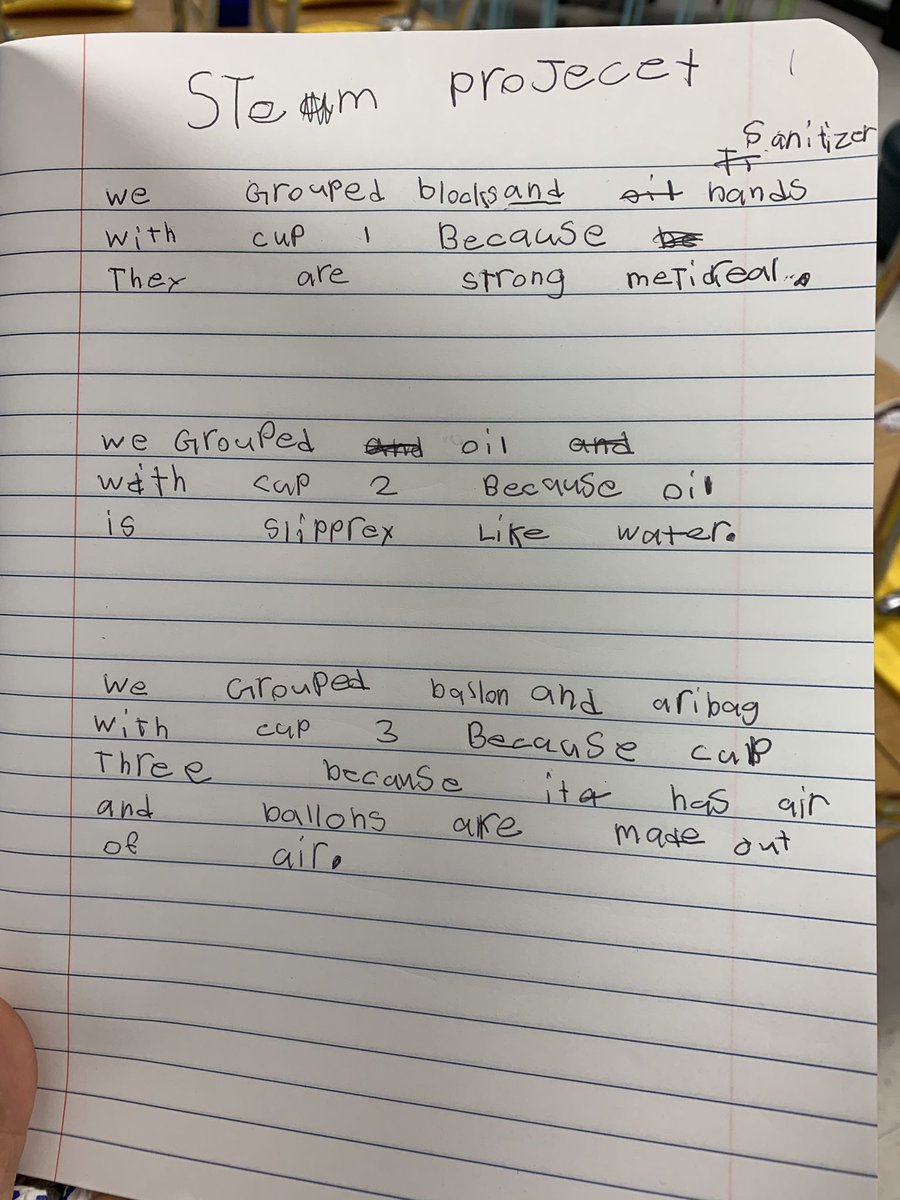 STem projecet
1
Sanitizer
we Grouped blocks and hands
with cup 1 Because
They are strong metidreal.
we Grouped oil
with cup 2 Because oil
is slipprey Like water.
we Grouped ballon and aribag
with cup 3 Because cup
Three because it has air
and ballons are made out
of air.